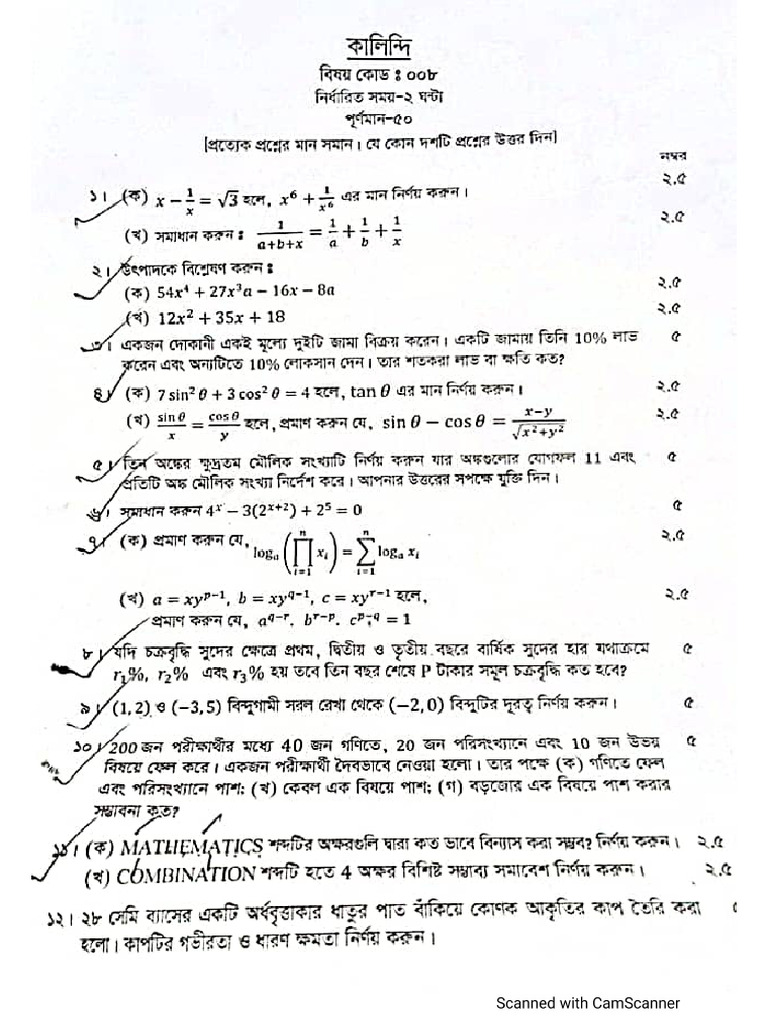 কালিন্দি
বিষয় কোড : ০০৮
নির্ধারিত সময়-২ ঘন্টা
পূর্ণমান-৫০
[প্রত্যেক প্রশ্নের মান সমান। যে কোন দশটি প্রশ্নের উত্তর দিন]
নম্বর
১। (ক) x − 1/x = √3 হলে, x⁶ + 1/x⁶ এর মান নির্ণয় করুন। ২.৫
(খ) সমাধান করুন : 1/(a+b+x) = 1/a + 1/b + 1/x ২.৫
২। উৎপাদকে বিশ্লেষণ করুন :
(ক) 54x⁴ + 27x³a − 16x − 8a ২.৫
(খ) 12x² + 35x + 18 ২.৫
৩। একজন দোকানী একই মূল্যে দুইটি জামা বিক্রয় করেন। একটি জামায় তিনি 10% লাভ ৫
করেন এবং অন্যটিতে 10% লোকসান দেন। তার শতকরা লাভ বা ক্ষতি কত?
৪। (ক) 7 sin² θ + 3 cos² θ = 4 হলে, tan θ এর মান নির্ণয় করুন। ২.৫
(খ) sin θ/x = cos θ/y হলে, প্রমাণ করুন যে, sin θ − cos θ = (x−y)/√(x²+y²) ২.৫
৫। তিন অঙ্কের ক্ষুদ্রতম মৌলিক সংখ্যাটি নির্ণয় করুন যার অঙ্কগুলোর যোগফল 11 এবং ৫
প্রতিটি অঙ্ক মৌলিক সংখ্যা নির্দেশ করে। আপনার উত্তরের সপক্ষে যুক্তি দিন।
৬। সমাধান করুন 4ˣ − 3(2ˣ⁺²) + 2⁵ = 0 ৫
৭। (ক) প্রমাণ করুন যে, logₐ (∏ᵢ₌₁ⁿ xᵢ) = ∑ᵢ₌₁ⁿ logₐ xᵢ ২.৫
(খ) a = xy^(p−1), b = xy^(q−1), c = xy^(r−1) হলে, ২.৫
প্রমাণ করুন যে, a^(q−r). b^(r−p). c^(p−q) = 1
৮। যদি চক্রবৃদ্ধি সুদের ক্ষেত্রে প্রথম, দ্বিতীয় ও তৃতীয় বছরে বার্ষিক সুদের হার যথাক্রমে ৫
r₁%, r₂% এবং r₃% হয় তবে তিন বছর শেষে P টাকার সমূল চক্রবৃদ্ধি কত হবে?
৯। (1, 2) ও (−3, 5) বিন্দুগামী সরল রেখা থেকে (−2, 0) বিন্দুটির দূরত্ব নির্ণয় করুন। ৫
১০। 200 জন পরীক্ষার্থীর মধ্যে 40 জন গণিতে, 20 জন পরিসংখ্যানে এবং 10 জন উভয় ৫
বিষয়ে ফেল করে। একজন পরীক্ষার্থী দৈবভাবে নেওয়া হলো। তার পক্ষে (ক) গণিতে ফেল
এবং পরিসংখ্যানে পাশ; (খ) কেবল এক বিষয়ে পাশ; (গ) বড়জোর এক বিষয়ে পাশ করার
সম্ভাবনা কত?
১১। (ক) MATHEMATICS শব্দটির অক্ষরগুলি দ্বারা কত ভাবে বিন্যাস করা সম্ভব? নির্ণয় করুন। ২.৫
(খ) COMBINATION শব্দটি হতে 4 অক্ষর বিশিষ্ট সম্ভাব্য সমাবেশ নির্ণয় করুন। ২.৫
১২। ২৮ সেমি ব্যাসের একটি অর্ধবৃত্তাকার ধাতুর পাত বাঁকিয়ে কোণক আকৃতির কাপ তৈরি করা ৫
হলো। কাপটির গভীরতা ও ধারণ ক্ষমতা নির্ণয় করুন।
Scanned with CamScanner